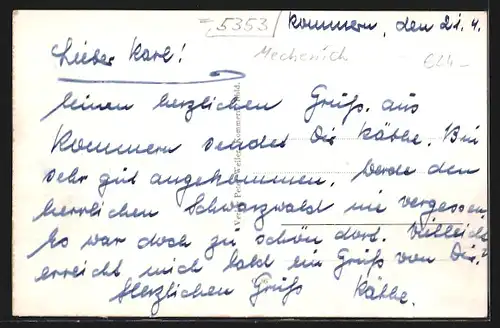 5353 Kommern, den 21.4.
Mechernich
Lieber Karl!
Einen herzlichen Gruß aus
Kommern sendet Dir Käthe. Bin
sehr gut angekommen. Werde den
herrlichen Schwarzwald nie vergessen.
Es war doch zu schön dort. Vielleicht
erreicht mich bald ein Gruß von Dir?
Herzlichen Gruß Käthe.